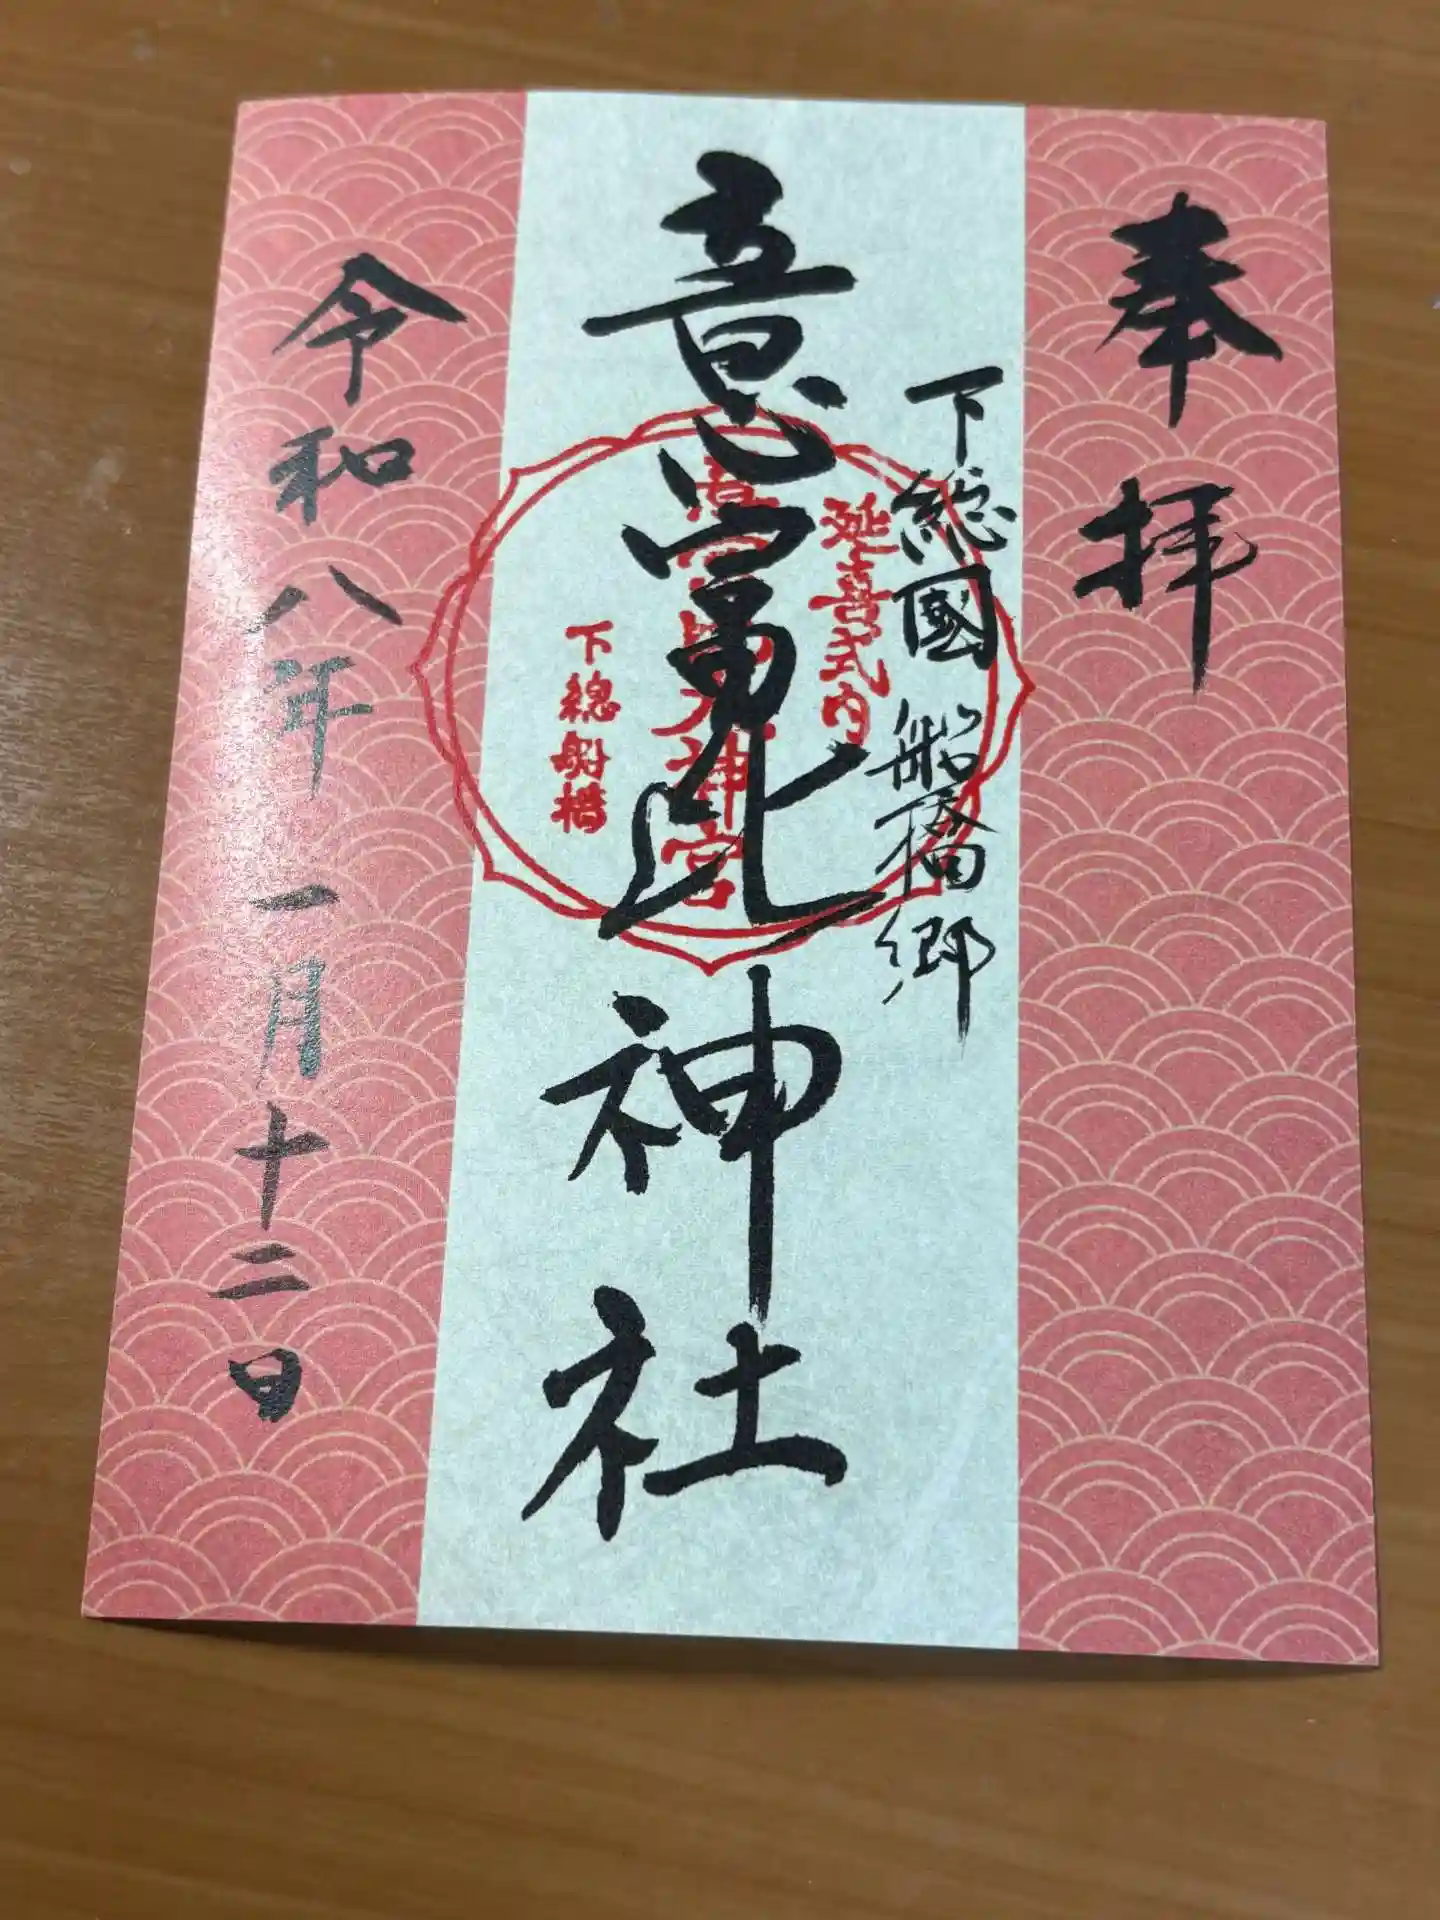 奉拝
下総國 船橋郷
意富比神社
延喜式内
意富比大神宮
下總船橋
令和八年一月十二日